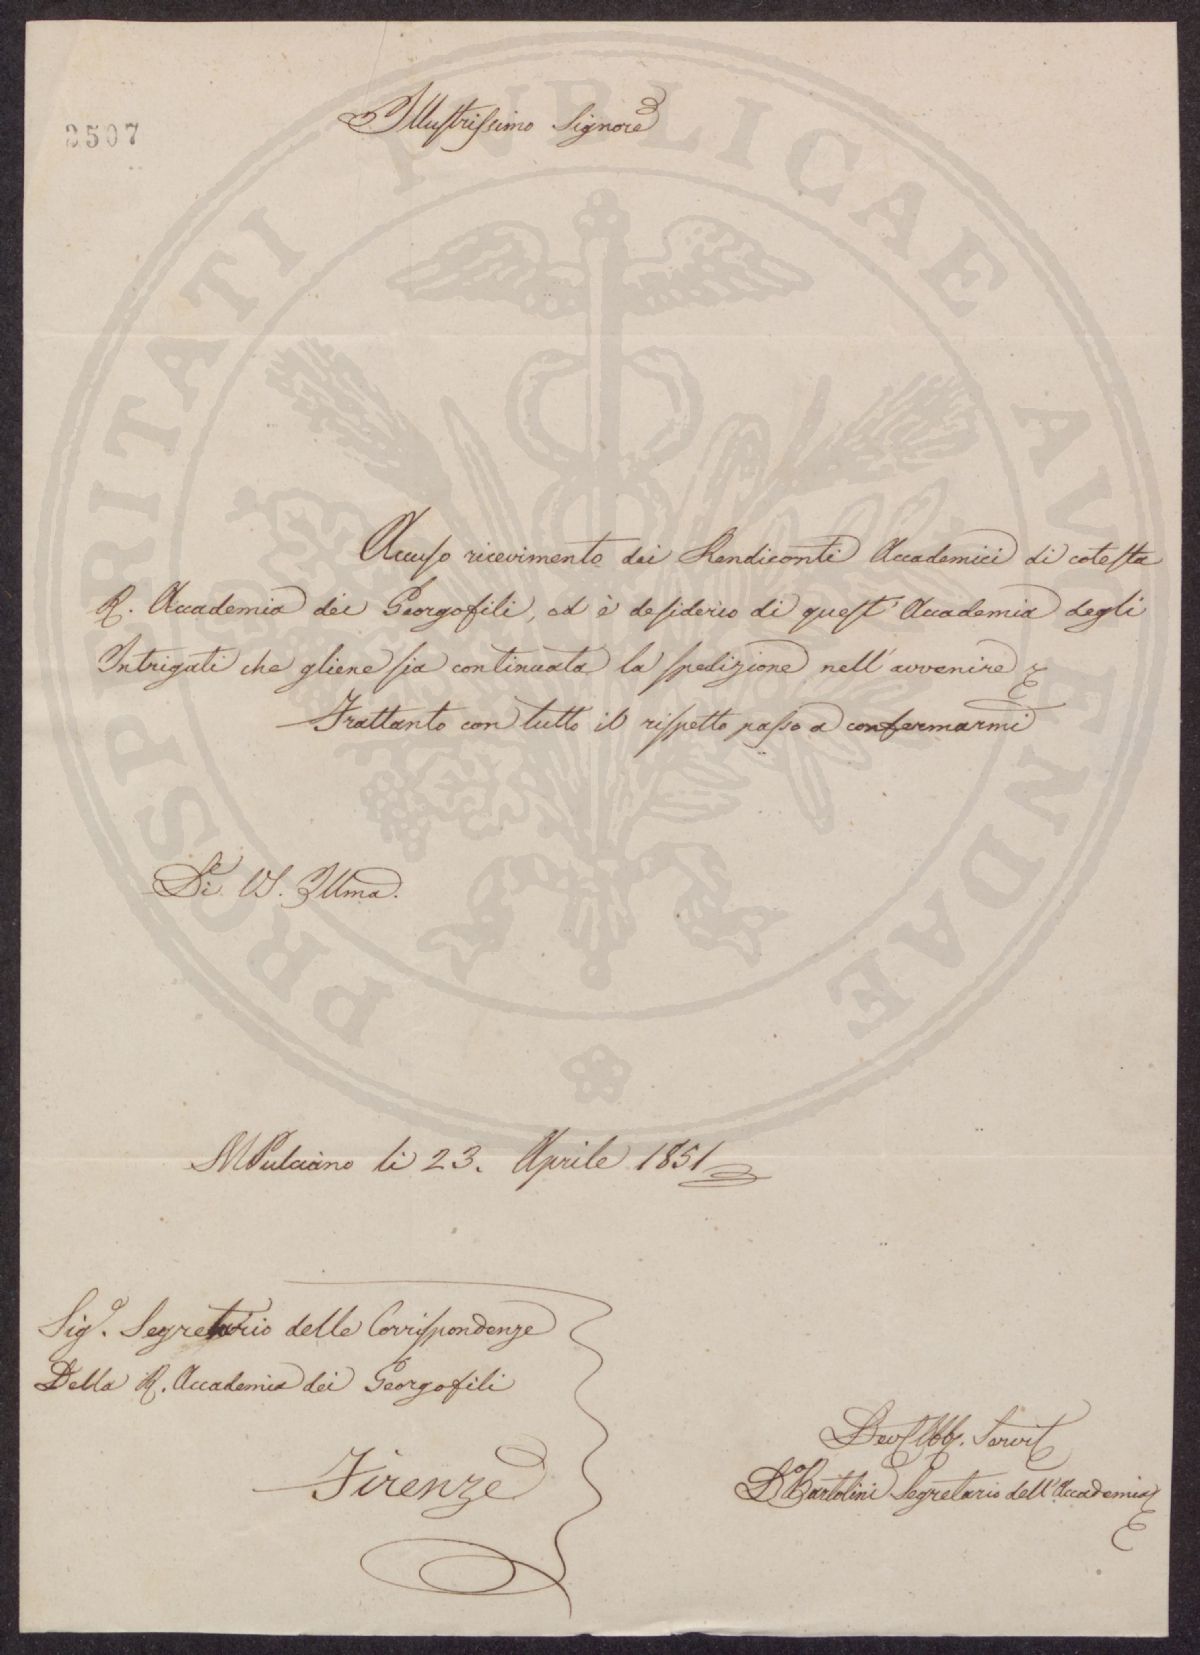 2507
Illustrissimo Signore
Accuso ricevimento dei Rendiconti Accademici di cotesta
R. Accademia dei Georgofili, ed è desiderio di quest'Accademia degli
Intrigati che gliene sia continuata la spedizione nell'avvenire
Frattanto con tutto il rispetto passo a confermarmi
Di VS. Illma.
MPulciano li 23. Aprile 1851
Sig.e Segretario delle Corrispondenze
Della R. Accademia dei Georgofili
Firenze
Dev. Obb. Servit
Do Bartolini Segretario dell'Accademia
PROSPERITATI PUBLICAE AUGENDAE